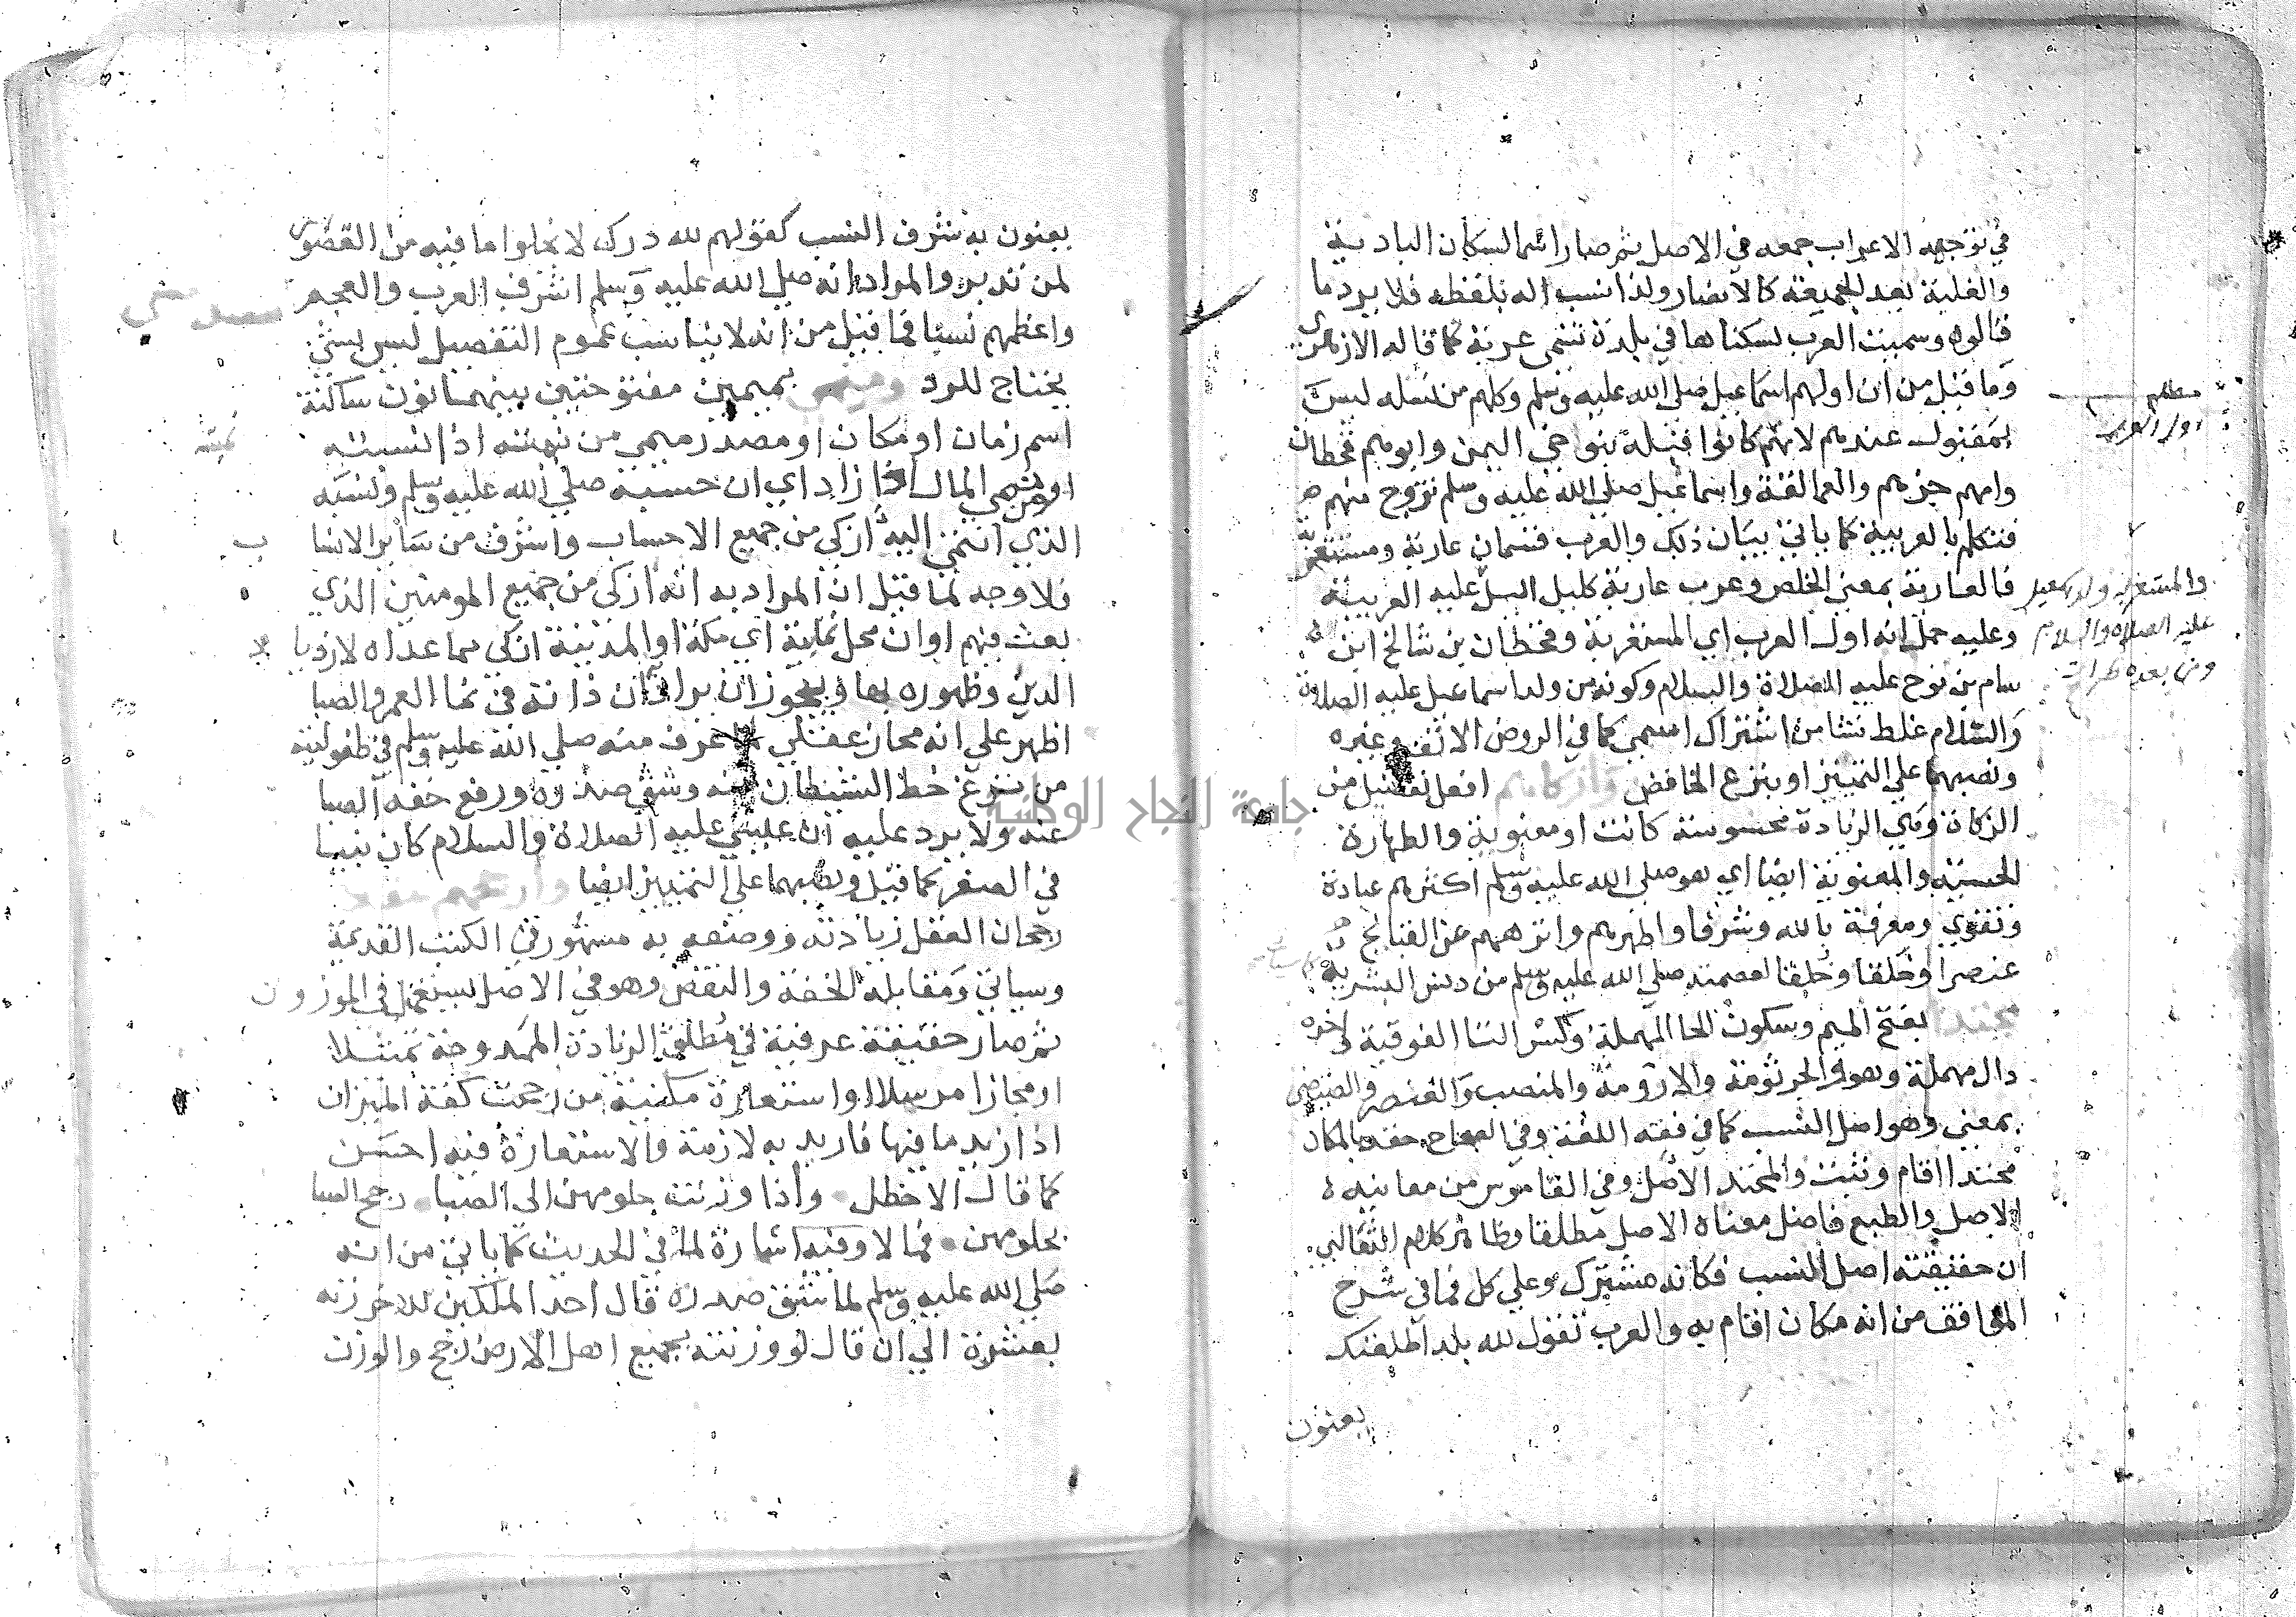 في توجيهه الاعراب جمعه في الاصل ثم صار اسما لسكان البادية
والغلبة بعد الجمعية كالانصار ولذا نسب اله بلفظه فلا يرد ما
قالوه وسميت العرب لسكناها في بلدة تسمى عربة كما قاله الازهري
وما قيل من ان اولهم اسماعيل صلى الله عليه وسلم وكلهم من نسله ليس
بمقبول عندهم لانهم كانوا قبله بنواحي اليمن وابوهم قحطان
وامهم جرهم والعمالقة واسماعيل صلى الله عليه وسلم تزوج منهم
فتكلم بالعربية كما ياتي بيان ذلك والعرب قسمان عاربة ومستعربة
فالعاربة بمعنى الخلص وعرب عاربة كليل اليل عليه العربية
وعليه حمل انه اول العرب اي المستعربة وقحطان بن شالخ ابن
سام بن نوح عليه الصلاة والسلام وكونه من ولد اسماعيل عليه الصلاة
والسلام غلط نشا من اشتراك اسمي كما في الروض الانف وغيره
ونصبهما على التمييز او بنزع الخافض وازكاهم افعل تفضيل من
الزكاة وهي الزيادة محسوسة كانت او معنوية والطهارة
الحسية والمعنوية ايضا اي هو صلى الله عليه وسلم اكثرهم عبادة
وتقوي ومعرفة بالله وشرفا واطهرهم وانزههم عن القبايح
عنصرا وخَلقا وخُلقا لعصمته صلى الله عليه وسلم من دنس البشرية
محتدا بفتح الميم وسكون الحا المهملة وكسر التا الفوقية اخره
دال مهملة وهو والجرثومة والارومة والمنصب والعنصر والضيضي
بمعنى وهو اصل النسب كما في فقه اللغة وفي الصحاح حقد بالمكان
محتدا اقام وثبت والمحتد الاصل وفي القاموس من معانيه
الاصل والطبع فاصل معناه الاصل مطلقا وظاهر كلام الثعالبي
ان حقيقته اصل النسب فكانه مشترك وعلى كل فما في شرح
المواقف من انه مكان اقام به والعرب تقول لله بلد اطلعتك
يعنون
مطلب
اول العرب
والمستعربة ولد اسمعيل
عليه الصلاة والسلام
ومن بعده طرات
يعنون به شرف النسب كقولهم لله درك لا يخلوا ما فيه من القصور
لمن تدبر والمراد انه صلى الله عليه وسلم اشرف العرب والعجم
واعظمهم نسبا فما قيل من انه لا يناسب عموم التفصيل ليس بشي
يحتاج للرد ومنمى بميمين مفتوحتين بينهما نون ساكنة
اسم زمان او مكان او مصدر ميمي من نميته اذا نسبته
او من نمي المال اذا زاد اي ان حسبه صلى الله عليه وسلم ونسبه
الذي انتمى اليه ازكى من جميع الاحساب واشرف من ساير الانسا
ب
فلا وجه لما قيل ان المراد به انه ازكى من جميع المومنين الذي
بعث فيهم او ان محل نمايه اي مكة او المدينة ازكى مما عداه لازديا
الدين وظهوره بها ويجوز ان يراد ان ذاته في نما العمر والصبا
اظهر على انه مجاز عقلي لما عرف منه صلى الله عليه وسلم في طفوليته
من نزع حظ الشيطان منه وشق صدره ورفع خفة الصبا
عنه ولا يرد عليه ان عيسى عليه الصلاة والسلام كان نبيا
في الصغر كما قيل ونصبهما على التمييز ايضا وارجحهم
رجحان العقل زيادته ووصفه به مشهور في الكتب القديمة
وسياتي ومقابله الخفة والنقص وهو في الاصل يستعمل في الموزون
ثم صار حقيقة عرفية في مطلق الزيادة الممدوحة تمثيلا
او مجازا مرسلا او استعارة مكنية من رجحت كفة الميزان
اذا زيد ما فيها فاريد به لازمة والاستعارة فيه احسن
كما قال الاخطل واذا وزنت حلومهن الى الصبا رجح الصبا
بحلومهن فمالا وفيه اشارة لما في الحديث كما ياتي من انه
صلى الله عليه وسلم لما شق صدره قال احد الملكين للاخر زنه
بعشرة الي ان قال لو وزنته بجميع اهل الارض رجح والوزن
جامعة النجاح الوطنية